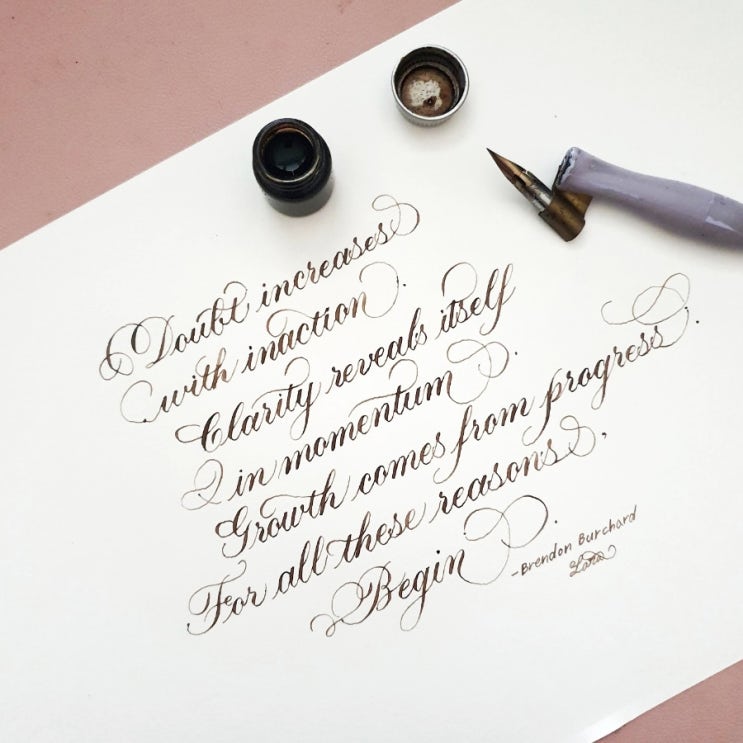 Doubt increases
with inaction.
Clarity reveals itself
in momentum.
Growth comes from progress.
For all these reasons,
Begin.
-Brendon Burchard
Lara